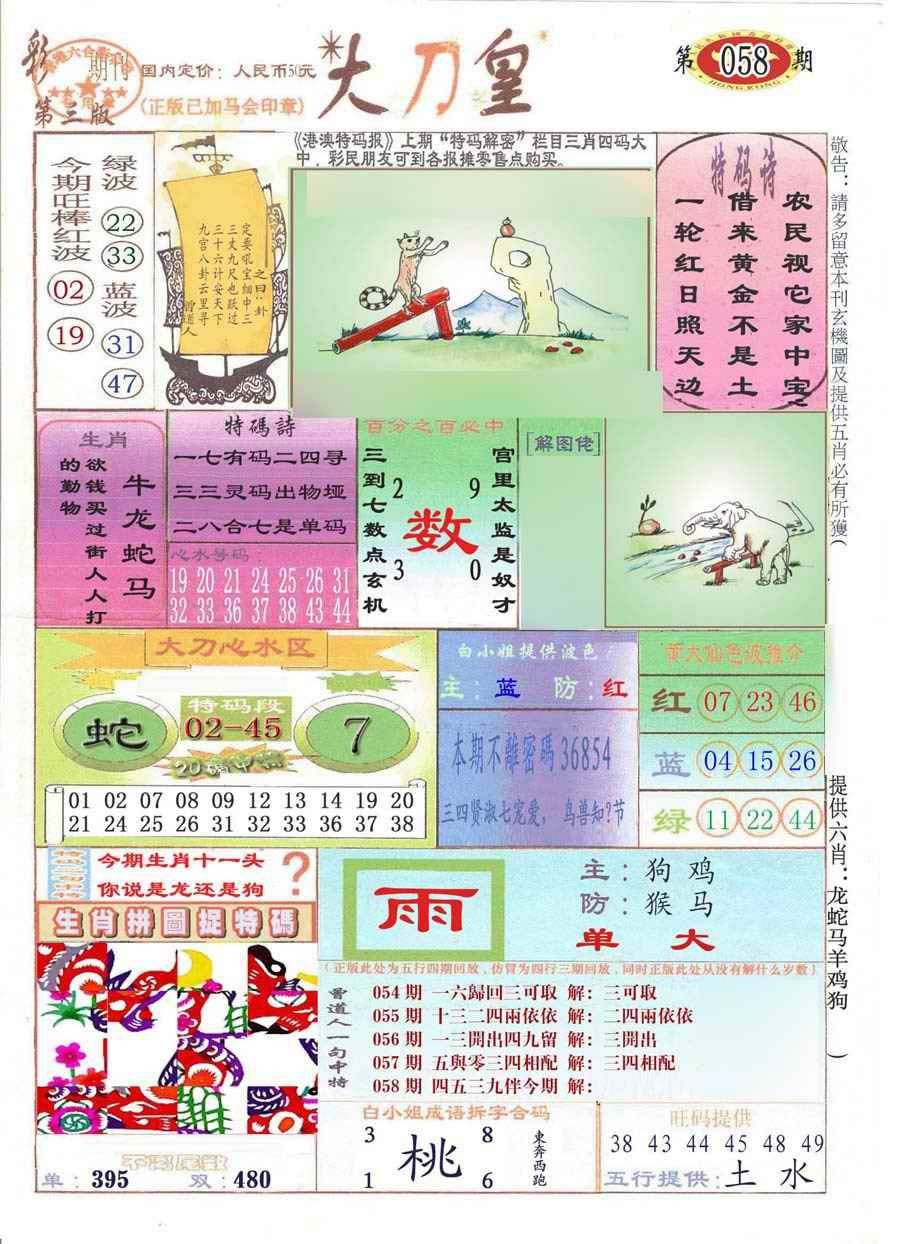 彩
期刊
第三版
国内定价：人民币50元
(正版已加马会印章)
大刀皇
第058期
HONG KONG
《港澳特码报》上期“特码解密”栏目三肖四码大
中，彩民朋友可到各报摊零售点购买。
今期旺棒红波
02
19
绿波
22
33
蓝波
31
47
之曰：卦
定要吼宝细中三
三丈九尺也跃过
三十六计安天下
九宫八卦云里寻
曾道人
特码诗
农民视它家中宝
借来黄金不是土
一轮红日照天边
敬告：請多留意本刊玄機圖及提供五肖必有所獲(
提供六肖：龙蛇马羊鸡狗
)
生肖
牛龙蛇马
欲钱买过街人人打
的勤物
特碼詩
一七有码二四寻
三三灵码出物垭
二八合七是单码
心水号码：
19 20 21 24 25 26 31
32 33 36 37 38 43 44
百分之百必中
三到七数点玄机
宫里太监是奴才
2 9
数
3 0
[解图佬]
大刀心水区
蛇
特码段
02-45
7
20碼中特
01 02 07 08 09 12 13 14 19 20
21 24 25 26 31 32 33 36 37 38
白小姐提供波色
主：蓝 防：红
本期不離密碼36854
三四贤淑七宠爱，鸟兽知?节
黄大仙色波推介
红 07 23 46
蓝 04 15 26
绿 11 22 44
今期生肖十一头
你说是龙还是狗
?
生肖拼圖捉特碼
单：395 双：480
雨
主：狗鸡
防：猴马
单大
(正版此处为五行四期回放，仿冒为四行三期回放，同时正版此处从没有解什么岁数)
曾道人一句中特
054期 一六歸回三可取 解：三可取
055期 十三二四兩依依 解：二四兩依依
056期 一三開出四九留 解：三開出
057期 五與零三四相配 解：三四相配
058期 四五三九伴今期 解：
白小姐成语拆字合码
3 8
桃
1 6
東奔西跑
旺码提供
38 43 44 45 48 49
五行提供：土水